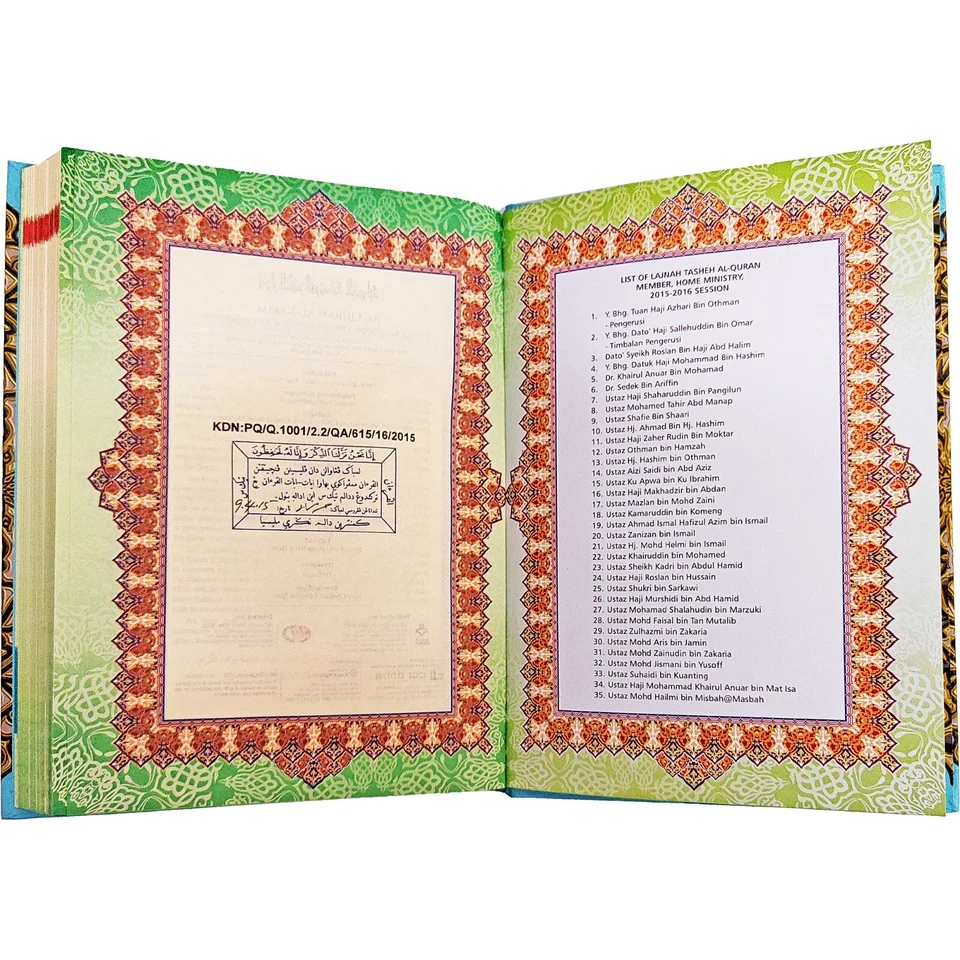 KDN:PQ/Q.1001/2.2/QA/615/16/2015
إنا نحن نزلنا الذكر وإنا له لحفظون
لماݢ ڤڠاوالن دان ڤليسينن ڤنچيتقن
القرءان مڠاکوي بهاوا ايات-ايات القرءان يڠ
ترکندوڠ ددالم تيک س اين اداله بتول.
9.4.15
تاريخ:
کمنترين دالم نݢري مليسيا
LIST OF LAJNAH TASHEH AL-QURAN
MEMBER, HOME MINISTRY,
2015-2016 SESSION
1. Y. Bhg. Tuan Haji Azhari Bin Othman
- Pengerusi
2. Y. Bhg. Dato' Haji Sallehuddin Bin Omar
- Timbalan Pengerusi
3. Dato' Syeikh Roslan Bin Haji Abd Halim
4. Y. Bhg. Datuk Haji Mohammad Bin Hashim
5. Dr. Khairul Anuar Bin Mohamad
6. Dr. Sedek Bin Ariffin
7. Ustaz Haji Shaharuddin Bin Pangilun
8. Ustaz Mohamed Tahir Abd Manap
9. Ustaz Shafie Bin Shaari
10. Hj. Ahmad Bin Hj. Hashim
11. Ustaz Haji Zaher Rudin Bin Moktar
12. Ustaz Othman bin Hamzah
13. Hj. Hashim bin Othman
14. Ustaz Aizi Saidi bin Abd Aziz
15. Ustaz Ku Apwa bin Ku Ibrahim
16. Ustaz Haji Makhadzir bin Abdan
17. Ustaz Mazlan bin Mohd Zaini
18. Ustaz Kamaruddin bin Komeng
19. Ustaz Ahmad Ismal Hafizul Azim bin Ismail
20. Ustaz Zanizan bin Ismail
21. Ustaz Hj. Mohd Helmi bin Ismail
22. Ustaz Khairuddin bin Mohamed
23. Ustaz Sheikh Kadri bin Abdul Hamid
24. Ustaz Haji Roslan bin Hussain
25. Ustaz Shukri bin Sarkawi
26. Ustaz Haji Murshidi bin Abd Hamid
27. Ustaz Mohamad Shalahudin bin Marzuki
28. Ustaz Mohd Faisal bin Tan Mutalib
29. Ustaz Zulhazmi bin Zakaria
30. Ustaz Mohd Aris bin Jamin
31. Ustaz Mohd Zainudin bin Zakaria
32. Ustaz Mohd Jismani bin Yusoff
33. Ustaz Suhaidi bin Kuanting
34. Ustaz Haji Mohammad Khairul Anuar bin Mat Isa
35. Ustaz Mohd Hailmi bin Misbah@Masbah